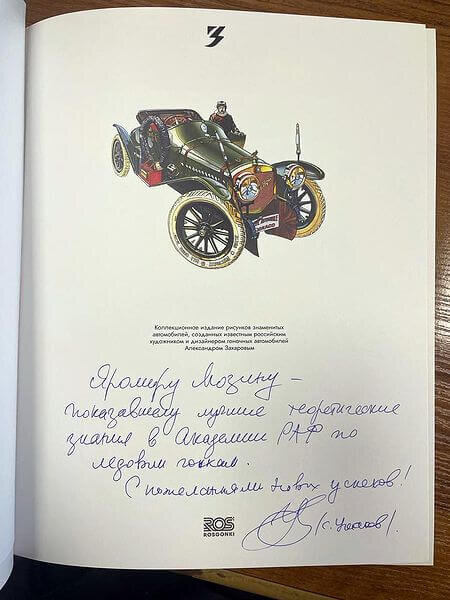 Коллекционное издание рисунков знаменитых
автомобилей, созданных известным российским
художником и дизайнером гоночных автомобилей
Александром Захаровым
Яромеру Мозину –
показавшему лучшие теоретические
знания в Академии РАФ по
ледовым гонкам.
С пожеланиями новых успехов!
ROS
ROSGONKI